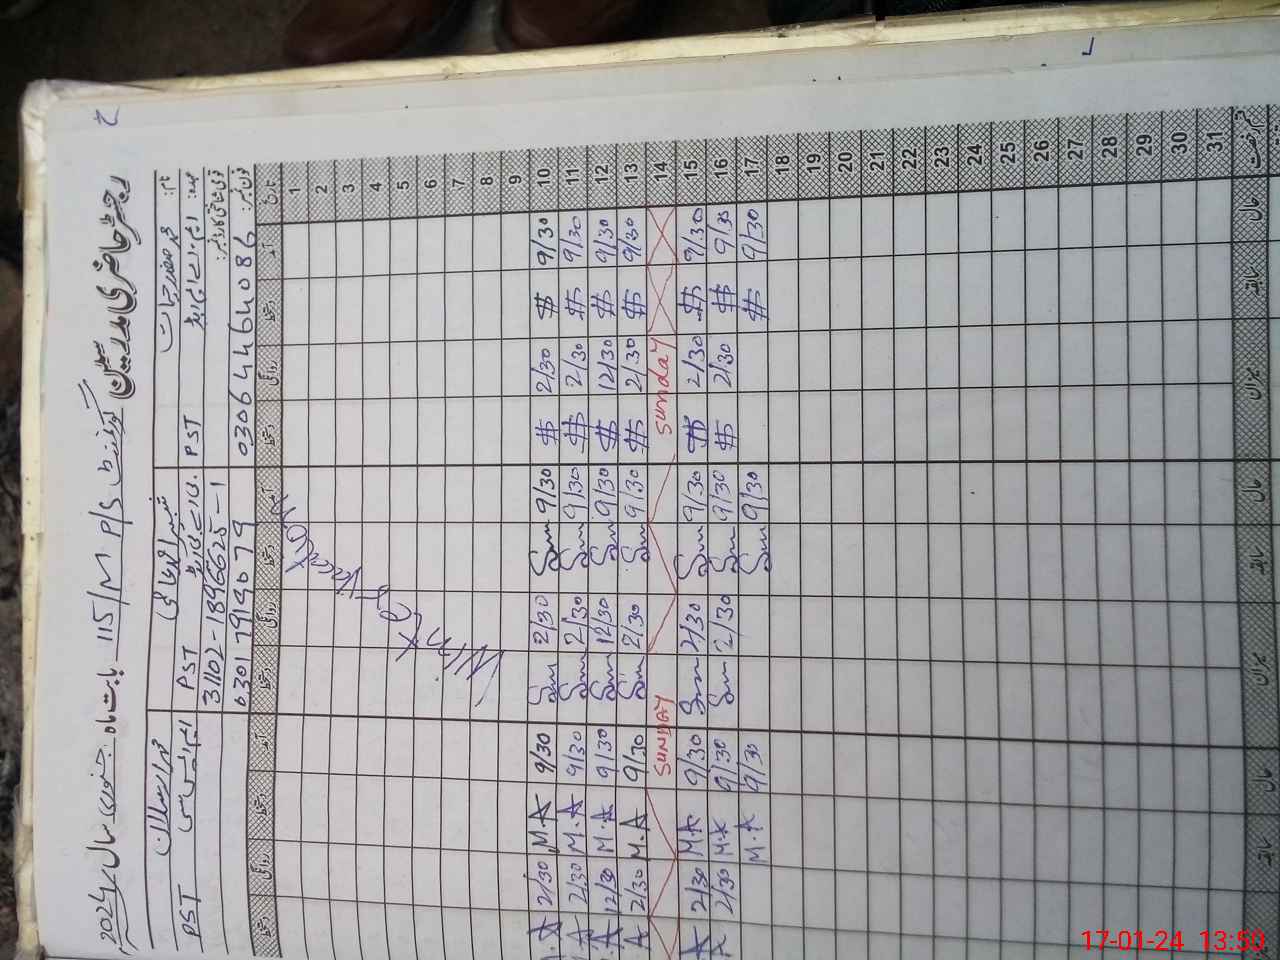 رجسٹر حاضری مدرسین گورنمنٹ 115/M P/S بابت ماہ جنوری سال 2024
نام: محمد خضر حیات
عہدہ: PST
فون نمبر: 03064464086
PST
31102-1896625-1
03017919079
محمد ارسلان
PST
تاریخ آمد دستخط روانگی دستخط آمد دستخط روانگی دستخط آمد دستخط روانگی دستخط
1
2
3
4
5
6
7
8
9
Winter Vacation
10 9/30 $ 2/30 $ 9/30 2/30 9/30 M.A 2/30
11 9/30 $ 2/30 $ 9/30 2/30 9/30 M.A 2/30
12 9/30 $ 12/30 $ 9/30 12/30 9/30 M.A 12/30
13 9/30 $ 2/30 $ 9/30 2/30 9/30 M.A 2/30
14 Sunday SUNDAY
15 9/30 $ 2/30 $ 9/30 2/30 9/30 M.A 2/30
16 9/30 $ 2/30 $ 9/30 2/30 9/30 M.A 2/30
17 9/30 $ 9/30 9/30 M.A
18
19
20
21
22
23
24
25
26
27
28
29
30
31
قسم رخصت حال سابقہ میزان حال سابقہ میزان حال سابقہ
17-01-24 13:50